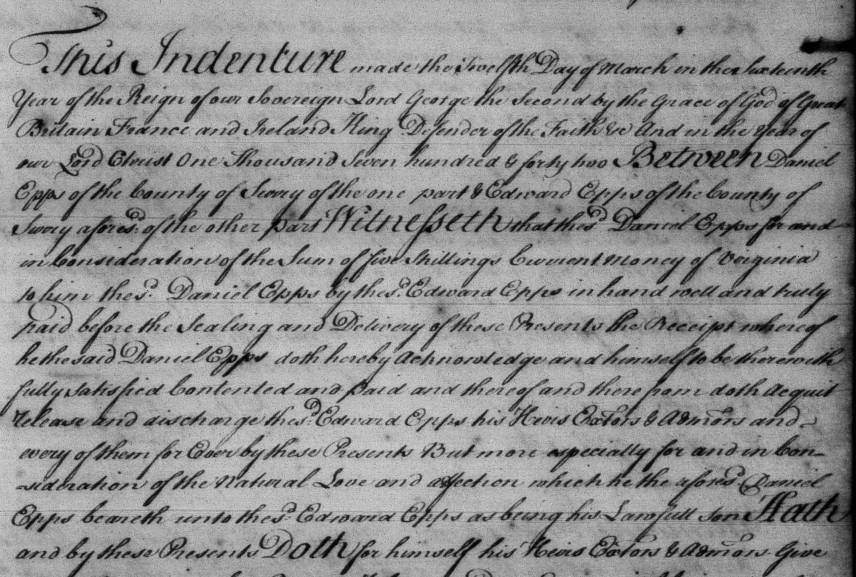 This Indenture made the Twelfth Day of March in the Sixteenth
Year of the Reign of our Sovereign Lord George the Second by the Grace of God of Great
Britain France and Ireland King Defender of the Faith &c And in the Year of
our Lord Christ One Thousand Seven hundred & forty two Between Daniel
Epps of the County of Surry of the one part & Edward Epps of the County of
Surry aforesd. of the other part Witnesseth that the sd. Daniel Epps for and
in Consideration of the Sum of five Shillings Current Money of Virginia
to him the sd. Daniel Epps by the sd. Edward Epps in hand well and truly
paid before the Sealing and Delivery of these Presents the Receipt whereof
he the said Daniel Epps doth hereby Acknowledge and himself to be therewith
fully Satisfied Contented and paid and thereof and there from doth Acquit
release and discharge the sd. Edward Epps his Heirs Exors & Admors and
every of them for Ever by these Presents But more especially for and in Con-
-sideration of the Natural Love and affection which he the aforesd. Daniel
Epps beareth unto the sd. Edward Epps as being his Lawfull Son Hath
and by these Presents Doth for himself his Heirs Exors & Admors Give